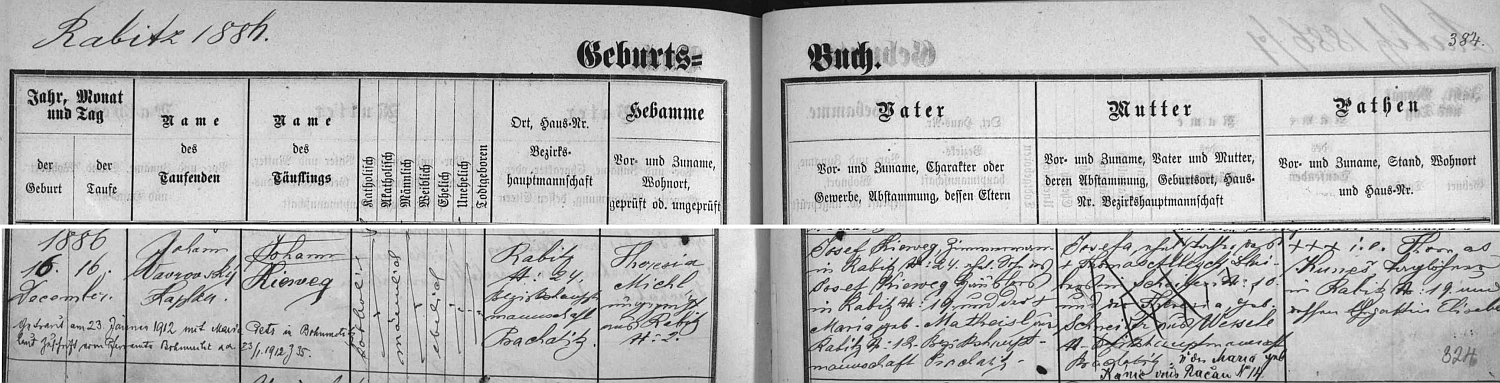 Rabitz 1886.
384.
Geburts=
Buch.
Jahr, Monat
und Tag
der
Geburt
der
Taufe
Name
des
Taufenden
Name
des
Täuflings
Katholisch
Akatholisch
Männlich
Weiblich
Ehelich
Unehelich
Todtgeboren
Ort, Haus-Nr.
Bezirks-
hauptmannschaft
Hebamme
Vor- und Zuname,
Wohnort,
geprüft od. ungeprüft
Vater
Vor- und Zuname, Charakter oder
Gewerbe, Abstammung, dessen Eltern
Mutter
Vor- und Zuname, Vater und Mutter,
deren Abstammung, Geburtsort, Haus-
Nr. Bezirkshauptmannschaft
Pathen
Vor- und Zuname, Stand, Wohnort
und Haus-Nr.
1886
16. 16.
December.
Johann
Kaplan.
Johann
Rieweg
katholisch
männlich
ehelich
Rabitz
N: 24
Bezirkshaupt-
mannschaft
Prachatitz
Theresia
Michl
aus Rabitz
N: 2.
Josef Rieweg, Zimmermann
in Rabitz N: 24, ehl. Sohn des
Josef Rieweg, Häuslers
in Rabitz N: 19 und der
Maria geb. Matheis aus
Rabitz N: 12 Bezirkshaupt-
mannschaft Prachatitz
Josefa, ehl. Tochter des
Thomas
N: 10.
und der geb.
Schneider aus Wessele
N Bezirkshauptmannschaft
Prachatitz u. der Maria geb.
aus Račau N 14
+++ i.e. Thomas
Kuneš
in Rabitz N: 19 und
dessen Gattin Elisabeth
Getraut am 23. Jänner 1912 mit Maria
laut Zuschrift vom Pfarramte
23/1. 1912 J 35.
324